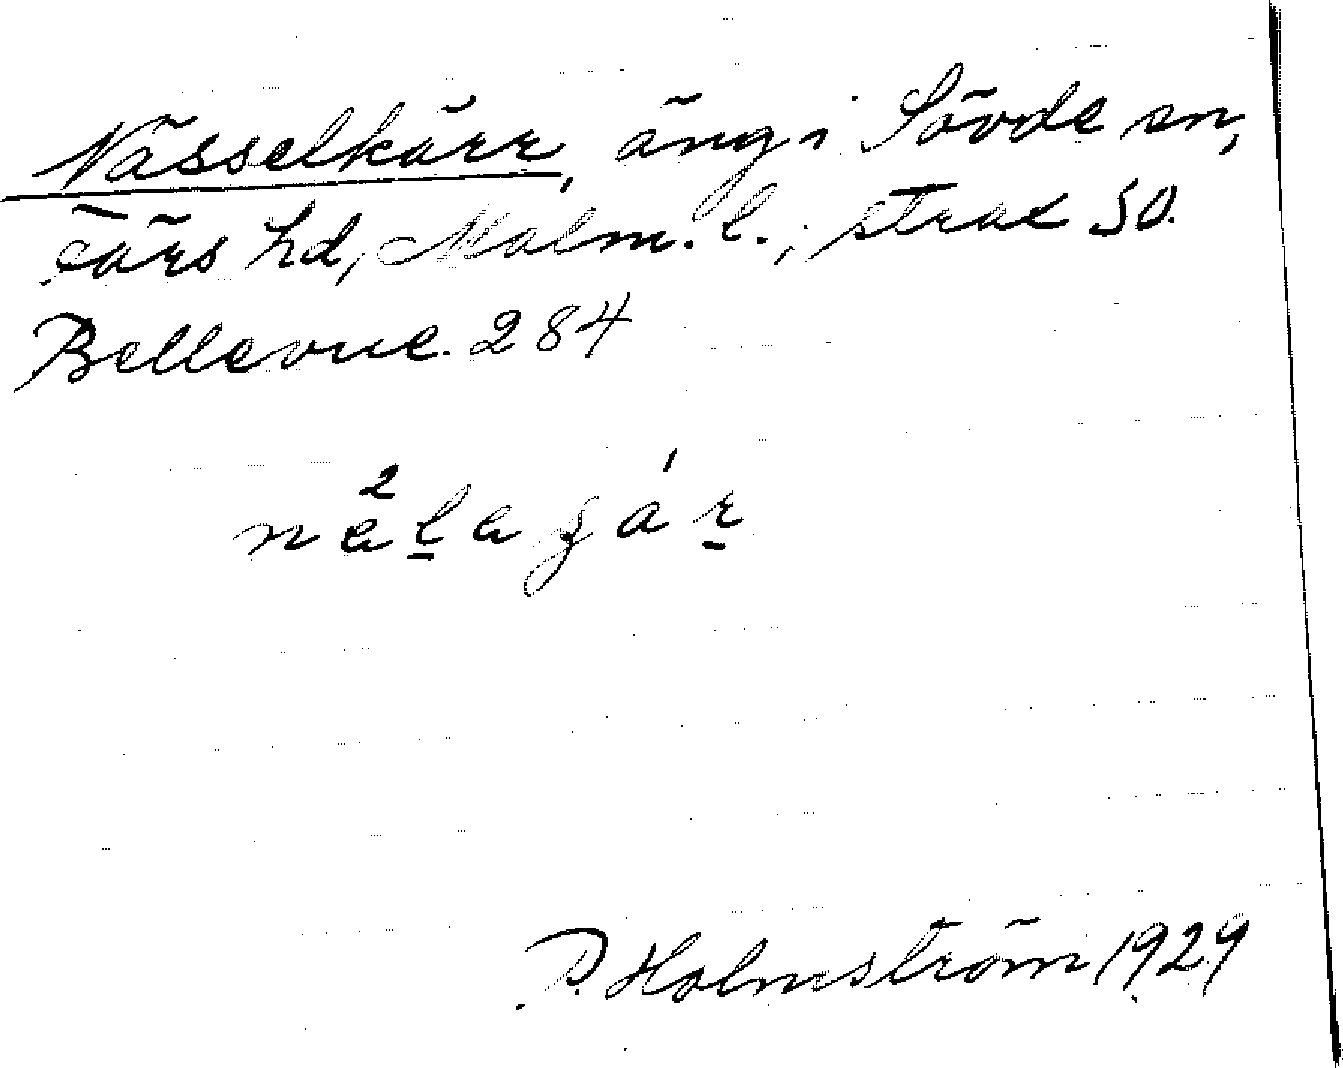 Nässelkärr, äng i Sövde sn,
Färs hd, Malm. l., strax SO.
Bellevue. 284
P. Holmström 1929